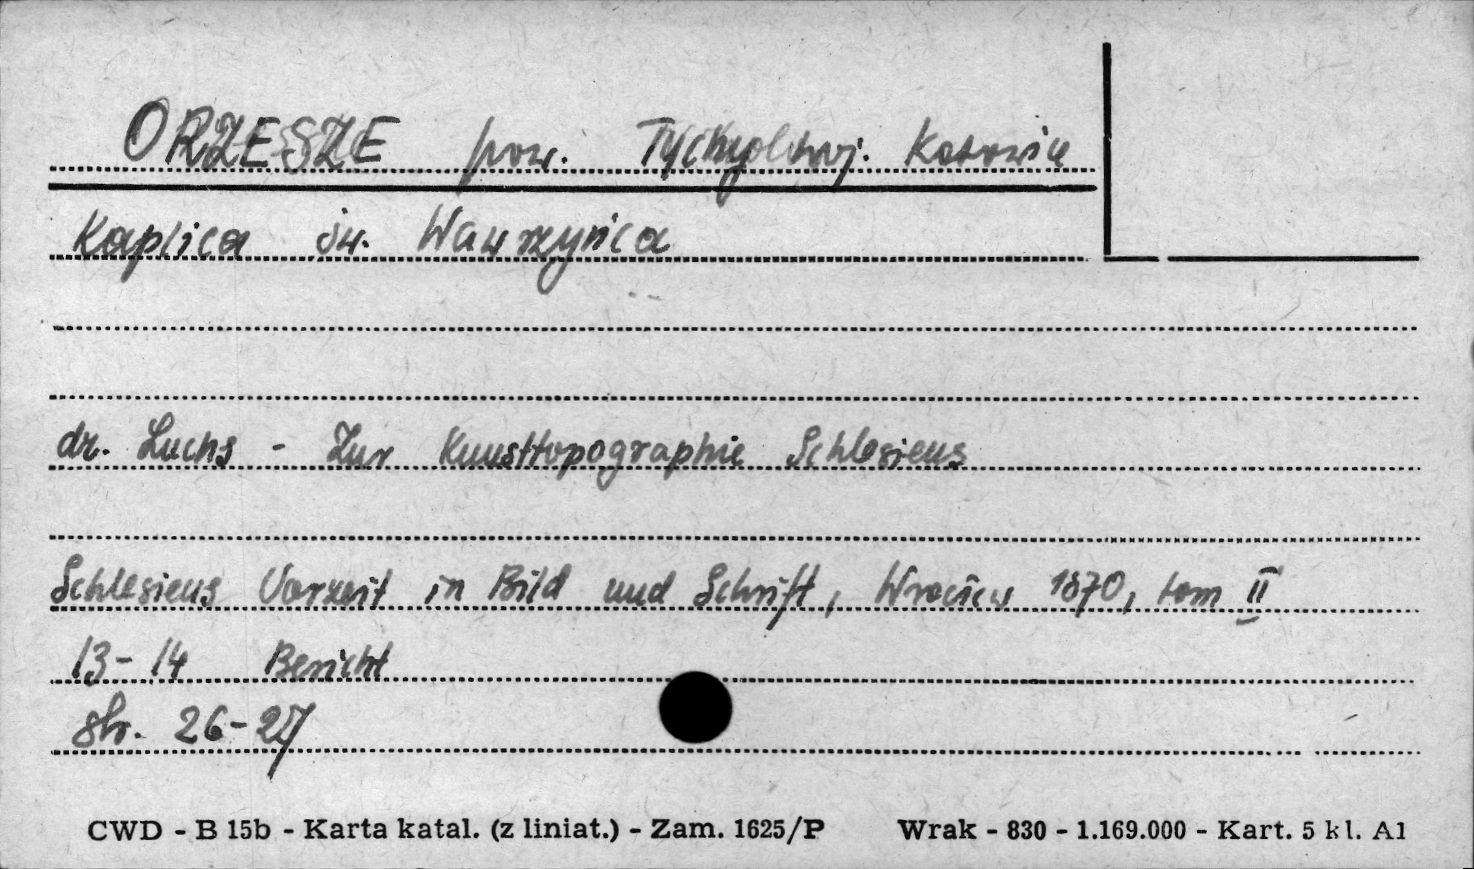 ORZESZE pow. Tychy woj. Katowice
Kaplica św. Wawrzyńca
dr. Luchs - Zur Kunsttopographie Schlesiens
Schlesiens Vorzeit in Bild und Schrift, Wrocław 1870, tom II
13-14 Bericht
str. 26-27
CWD - B 15b - Karta katal. (z liniat.) - Zam. 1625/P Wrak - 830 - 1.169.000 - Kart. 5 kl. A1